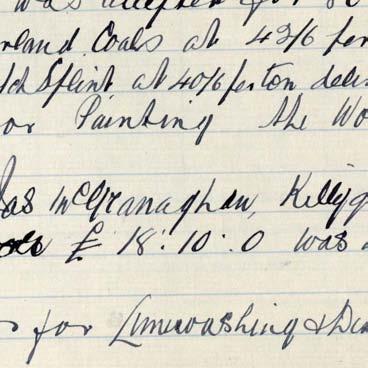 was accepted for
erland Coals at 42/6 per
Splint at 40/6 per ton deli
or Painting the Wo
Jas McGranaghan, Killyg
£ 18:10:0 was a
for Limewashing & Dis